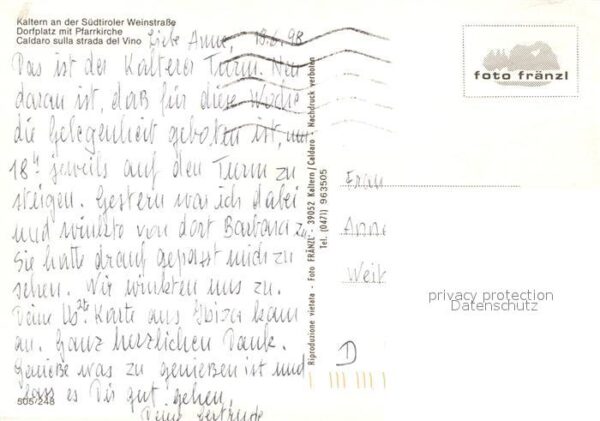 Kaltern an der Südtiroler Weinstraße
Dorfplatz mit Pfarrkirche
Caldaro sulla strada del Vino
Liebe Anne, 13.6.98
Das ist der Kalterer Turm. Neu
daran ist, daß für diese Woche
die Gelegenheit geboten ist, um
18ʰ jeweils auf den Turm zu
steigen. Gestern war ich dabei
und winkte von dort Barbara zu.
Sie hatte drauf gepasst mich zu
sehen. Wir winkten uns zu.
Deine Karte aus Ibiza kam
an. Ganz herzlichen Dank.
Genieße was zu genießen ist und
lass es Dir gut gehen.
Deine Gertrude
505/248
Riproduzione vietata - Foto FRÄNZL - 39052 Kaltern/Caldaro - Nachdruck verboten
Tel. (0471) 963505
foto fränzl
Frau
Anne
Weik
D
privacy protection
Datenschutz